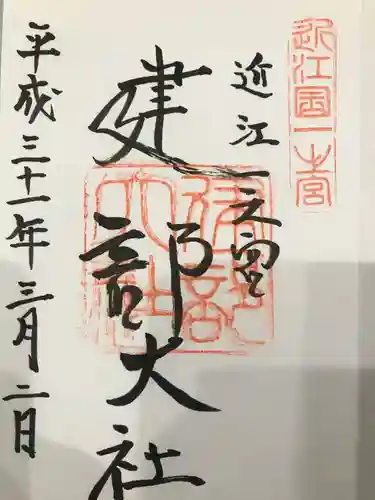 近江国一之宮
近江一之宮
建部大社
建部大社
平成三十一年三月二日